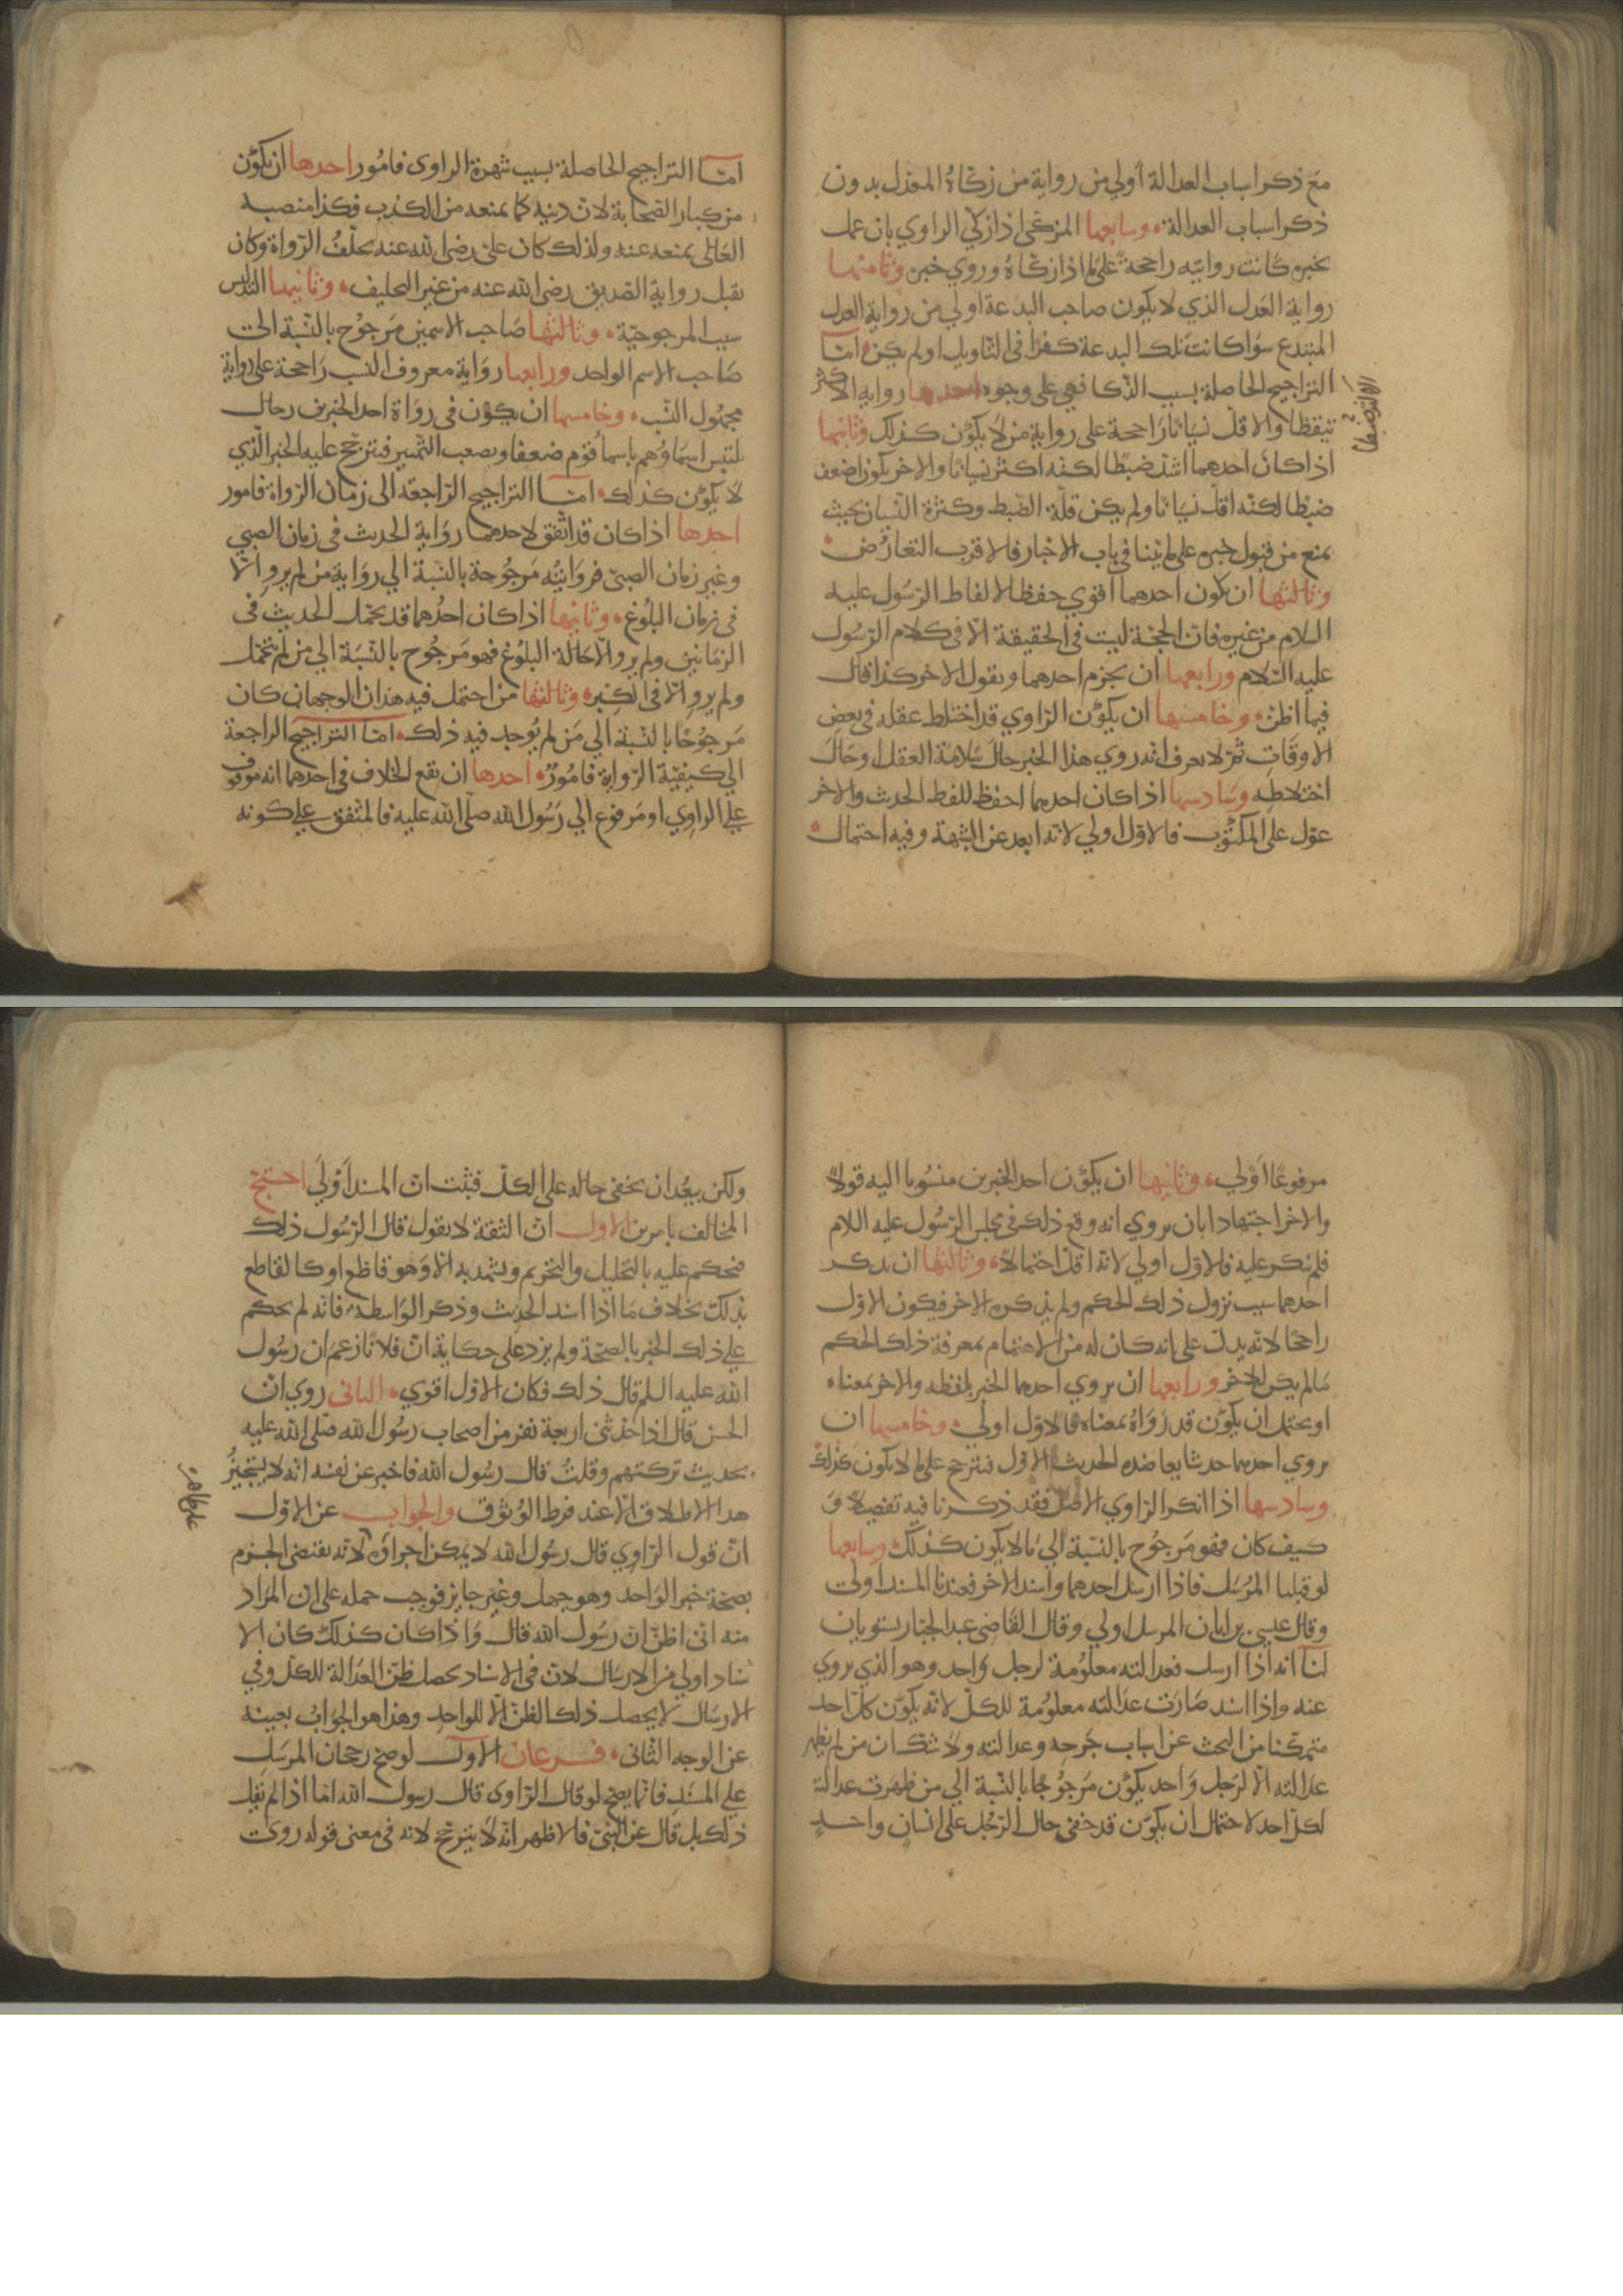 مع ذكر اسباب العدالة أولي من رواية من زكاهُ المعدّل بدون
ذكر اسباب العدالة وسابعها المزكى اذا زكّي الراوي بان عمل
بخبره كانت روايته راجحة على ما اذا زكاهُ وروي خبره وثامنها
رواية العدل الذي لا يكون صاحب البدعة اولي من رواية العدل
المبتدع سوا كانت تلك البدعة كفرًا في التاويل او لم يكن امّا
التراجيح الحاصلة بسبب الذكا فهي على وجوه احدها رواية الاكثر
تيقظا والاقلّ نسيانًا راجحة على رواية من لا يكوّن كذلك وثانيها
اذا كان احدهما اشدّ ضبطا لكنّه اكثر نسيانا والاخر يكون اضعف
ضبطا لكنّه اقلّ نسيانا ولم يكن قلّة الضبط وكثرة النسيان بحيث
يمنع من قبول خبره على ما بيّنا في باب الاخبار فالاقرب التعارُض
وثالثها ان يكون احدهما اقوي حفظا لالفاظ الرسُول عليه
السلام من غيره فانّ الحجّة ليست في الحقيقة الّا في كلام الرسُول
عليه السّلام ورابعها ان يجزم احدهما ويقول الاخر كذا قال
فيما اظن وخامسها ان يكوّن الراوي قد اختلط عقله في بعض
الاوقات ثمّ لا يعرف انه روي هذا الخبر حال سَلامة العقل او حال
اختلاطه وسادسها اذا كان احدهما احفظ للفظ الحديث والاخر
عوّل على المكتوب فالاوّل اولي لانّه ابعد عن الشبهة وفيه احتمال
امّا التراجيح الحاصلة بسبب شهرة الراوى فامُور احدها ان يكوّن
من كبار الصّحابة لانّ دينه كما يمنعه من الكذب فكذا منصبه
العالى يمنعه عنه ولذلك كان علىّ رضى الله عنه يحلّفُ الرّواة وكان
يقبل رواية الصّديق رضى الله عنه من غير التحليف وثانيها التدليس
سبب المرجوحيّة وثالثها صَاحب الاسمين مَرجوُح بالنّسبة الى
صَاحب الاسم الواحد ورابعها روَاية معروف النسب رَاجحة على رواية
مجهُول النسب وخامسها ان يكوّن فى روَاة احد الخبرين رجال
يلتبس اسمَاوُهم باسما قوم ضعفا ويصعب التّمييز فيترجّح عليه الخبر الّذي
لا يكوّن كذلك امّا التراجيح الرّاجعة الى زمان الرواة فامور
احدها اذا كان قد اتّفق لاحدهما روَاية الحديث فى زمان الصبي
وغير زمان الصبىّ فروايتُه مَرجُوحة بالنّسبة الي روَاية من لم يرو الّا
فى زمان البلُوغ وثانيها اذا كان احدُهما قد يحمّل الحديث فى
الزمانين ولم يرو الّا حَالة البلُوغ فهو مَرجُوح بالنّسبَة الي من لم يتحمّل
ولم يرو الّا فى الكبر وثالثها من احتمل فيه هذان الوجهان كان
مَرجُوحًا بالنّسبة الي مَن لم يُوجد فيه ذلك امّا التراجيح الراجعة
الي كيفيّة الرّواية فامُورٌ احدها ان يقع الخلاف فى احدهما انه موقوف
على الراوي او مَرفوع الي رَسُول الله صلّى الله عليه فالمتّفق على كونه
مرفوعًا اَوْلي وثانيها ان يكوّن احد الخبرين منسُوبا اليه قولًا
والاخر اجتهادا بان يروي انه وقع ذلك في مجلس الرّسُول عليه السلام
فلم ينكر عليه فالاوّل اولي لانّه اقلّ احتمالًا وثالثها ان يذكر
احدهما سبب نزول ذلك الحكم ولم يذكره الاخر فيكون الاوّل
راجحًا لانّه يدلّ على انه كان له من الاهتمام بمعرفة ذلك الحكم
مَا لم يكن للاخر ورابعها ان يروي احدهما الخبر بلفظه والاخر بمعناه
او يحتمل ان يكوّن قد روَاهُ بمعناه فالاوّل اولي وخامسها ان
يروي احدهما حديثا يعاضده الحديث الاوّل فيترجح على ما لا يكون كذلك
وسادسها اذا انكر الراوي الاصل فقد ذكرنا فيه تفصيلًا وَ
كيف كان فهو مَرجُوح بالنّسبَة الي مَا لا يكون كذلك وسابعها
لو قبلنا المرُسَل فاذا ارسل احدهما واسند الاخر فعندنا المسند اولى
وقال عيسي بن ابان المرسل اولي وقال القاضى عبد الجبّار يستويان
لنا انه اذا ارسل فعدالته معلوُمة لرجل وَاحد وهو الذي يروي
عنه واذا اسند صَارت عدَالته معلوُمة للكلّ لانّه يكوّن كلّ احد
متمكّنا من البحث عن اسباب جَرحِه وعدالته ولا شك ان من لم يظهر
عدالته الّا لرجل وَاحد يكوّن مَرجُوحًا بالنّسبة الي من ظهرت عدالته
لكلّ احد لاحتمال ان يكوّن قد خفى حال الرّجُل على انسان واحدٍ
ولكن يبعُد ان يخفى حاله على الكلّ فثبت انّ المسند اَوْليَ احتجّ
المخالف بامرين الاول انّ الثقة لا يقول قال الرّسُول ذلك
فيحكم عليه بالتحليل والتحريم ويشهد به الّا وَهو قاطع او كالقاطع
بذلك بخلاف مَا اذا اسند الحديث وذكر الوَاسطة فانّه لم يحكم
على ذلك الخبر بالصحّة ولم يزد على حكاية انّ فلانًا زعم ان رسُول
الله عليه السلم قال ذلك فكان الاوّل اقوي الثانى روي انّ
الحسن قال اذا حدّثنى اربعة نفر من اصحاب رسُول الله صلّى الله عليه
بحديث تركتهم وقلتُ قال رسُول الله فاخبر عن نفسه انّه لا يستجيزُ
هذا الاطلاق الّا عند فرط الوُثوُق والجواب عن الاوّل
انّ قول الرّاوِي قال رسُول الله لا يمكن اجراوُه لانّه يقتضى الجزم
بصحّة خبر الوَاحد وهو جهل وغير جايز فوجب حمله على ان المرَاد
منه انّى اظنّ انّ رسُول الله قال وَاذا كان كذلك كان الا
سناد اولي من الارسَال لانّ فى الاسناد يحصل ظنّ العَدالة للكلّ وفي
الارسَال لا يحصل ذلك الظنّ الّا للواحد وهذا هو الجوَابُ بعينه
عن الوجه الثّانى فرعان الاول لو صحّ رجحان المرسَل
على المسند فانّما يصحّ لو قال الرّاوى قال رسول الله امّا اذا لم يقل
ذلك بل قال عن النّبىّ فالاظهر انّه لا يترجّح لانّه فى معنى قوله روى